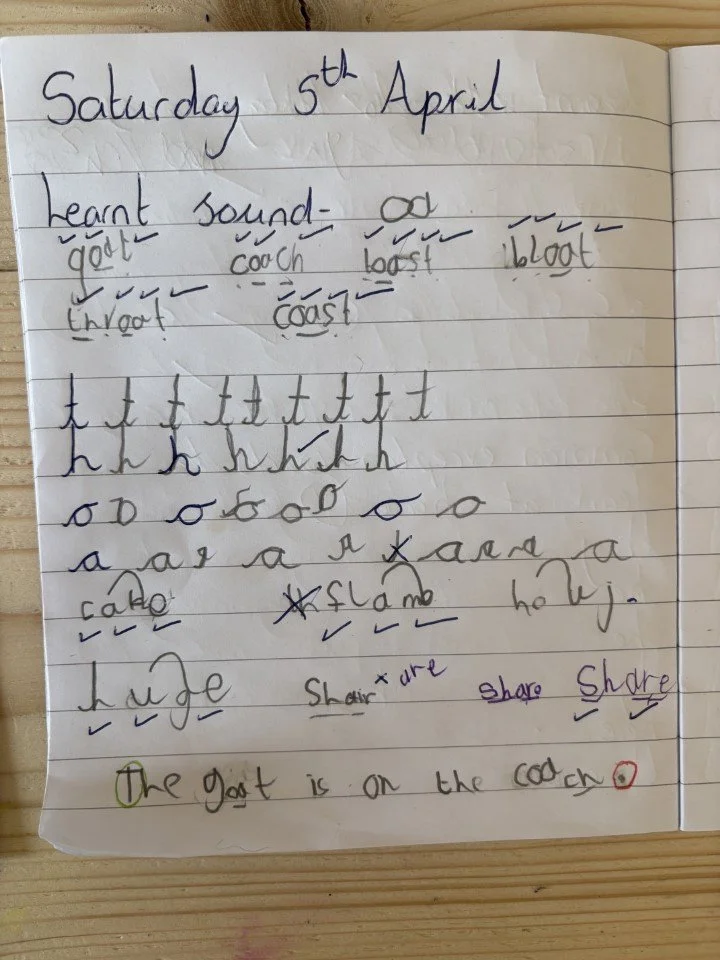 Saturday 5th April
Learnt sound- oa
goat coach boast bloat
throat coast
t t t t t t t t t
h h h h h h h
o o o o o o o o
a a a a a a a a a
cake flamb
huge Shair are share Share
The goat is on the coach.